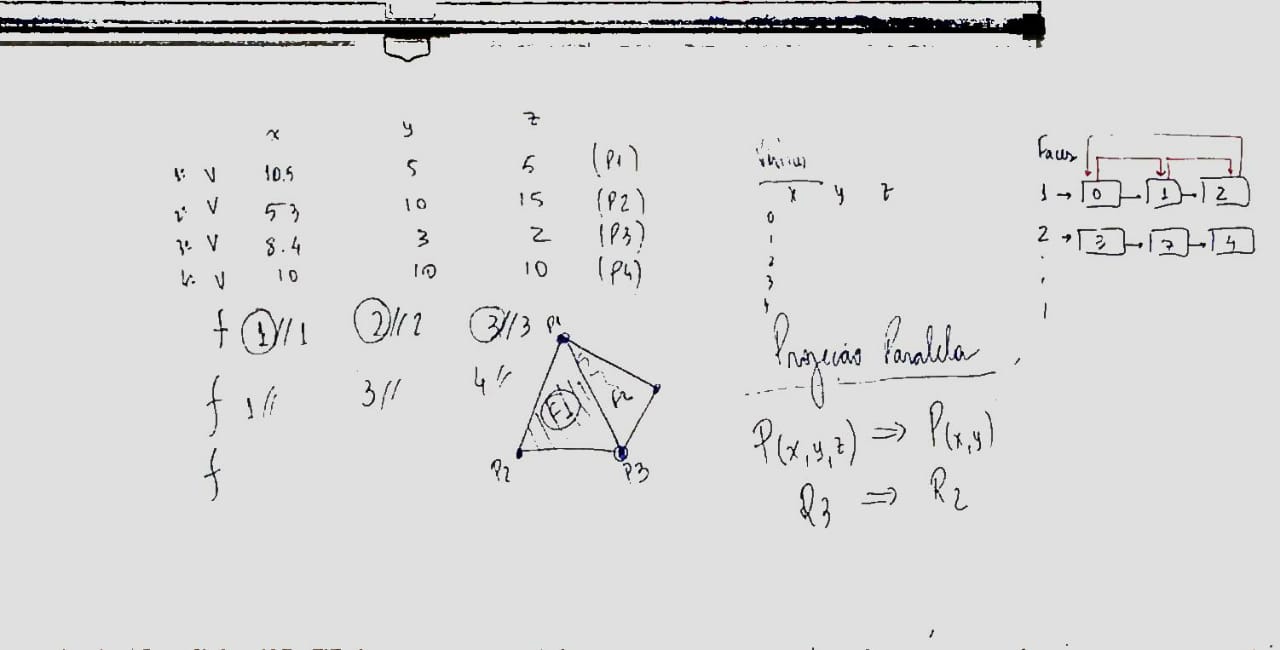 x y z
1º V 10.5 5 5 (P1)
2º V 53 10 15 (P2)
3º V 8.4 3 2 (P3)
4º V 10 10 10 (P4)
f 1//1 2//2 3//3
f 1// 3// 4//
f
P1
F1 F2
P2 P3
x y z
0
1
2
3
4
Projeção Paralela
P(x,y,z) ⇒ P(x,y)
R3 ⇒ R2
Faces
1 → 0 → 1 → 2
2 → 3 → 7 → 4